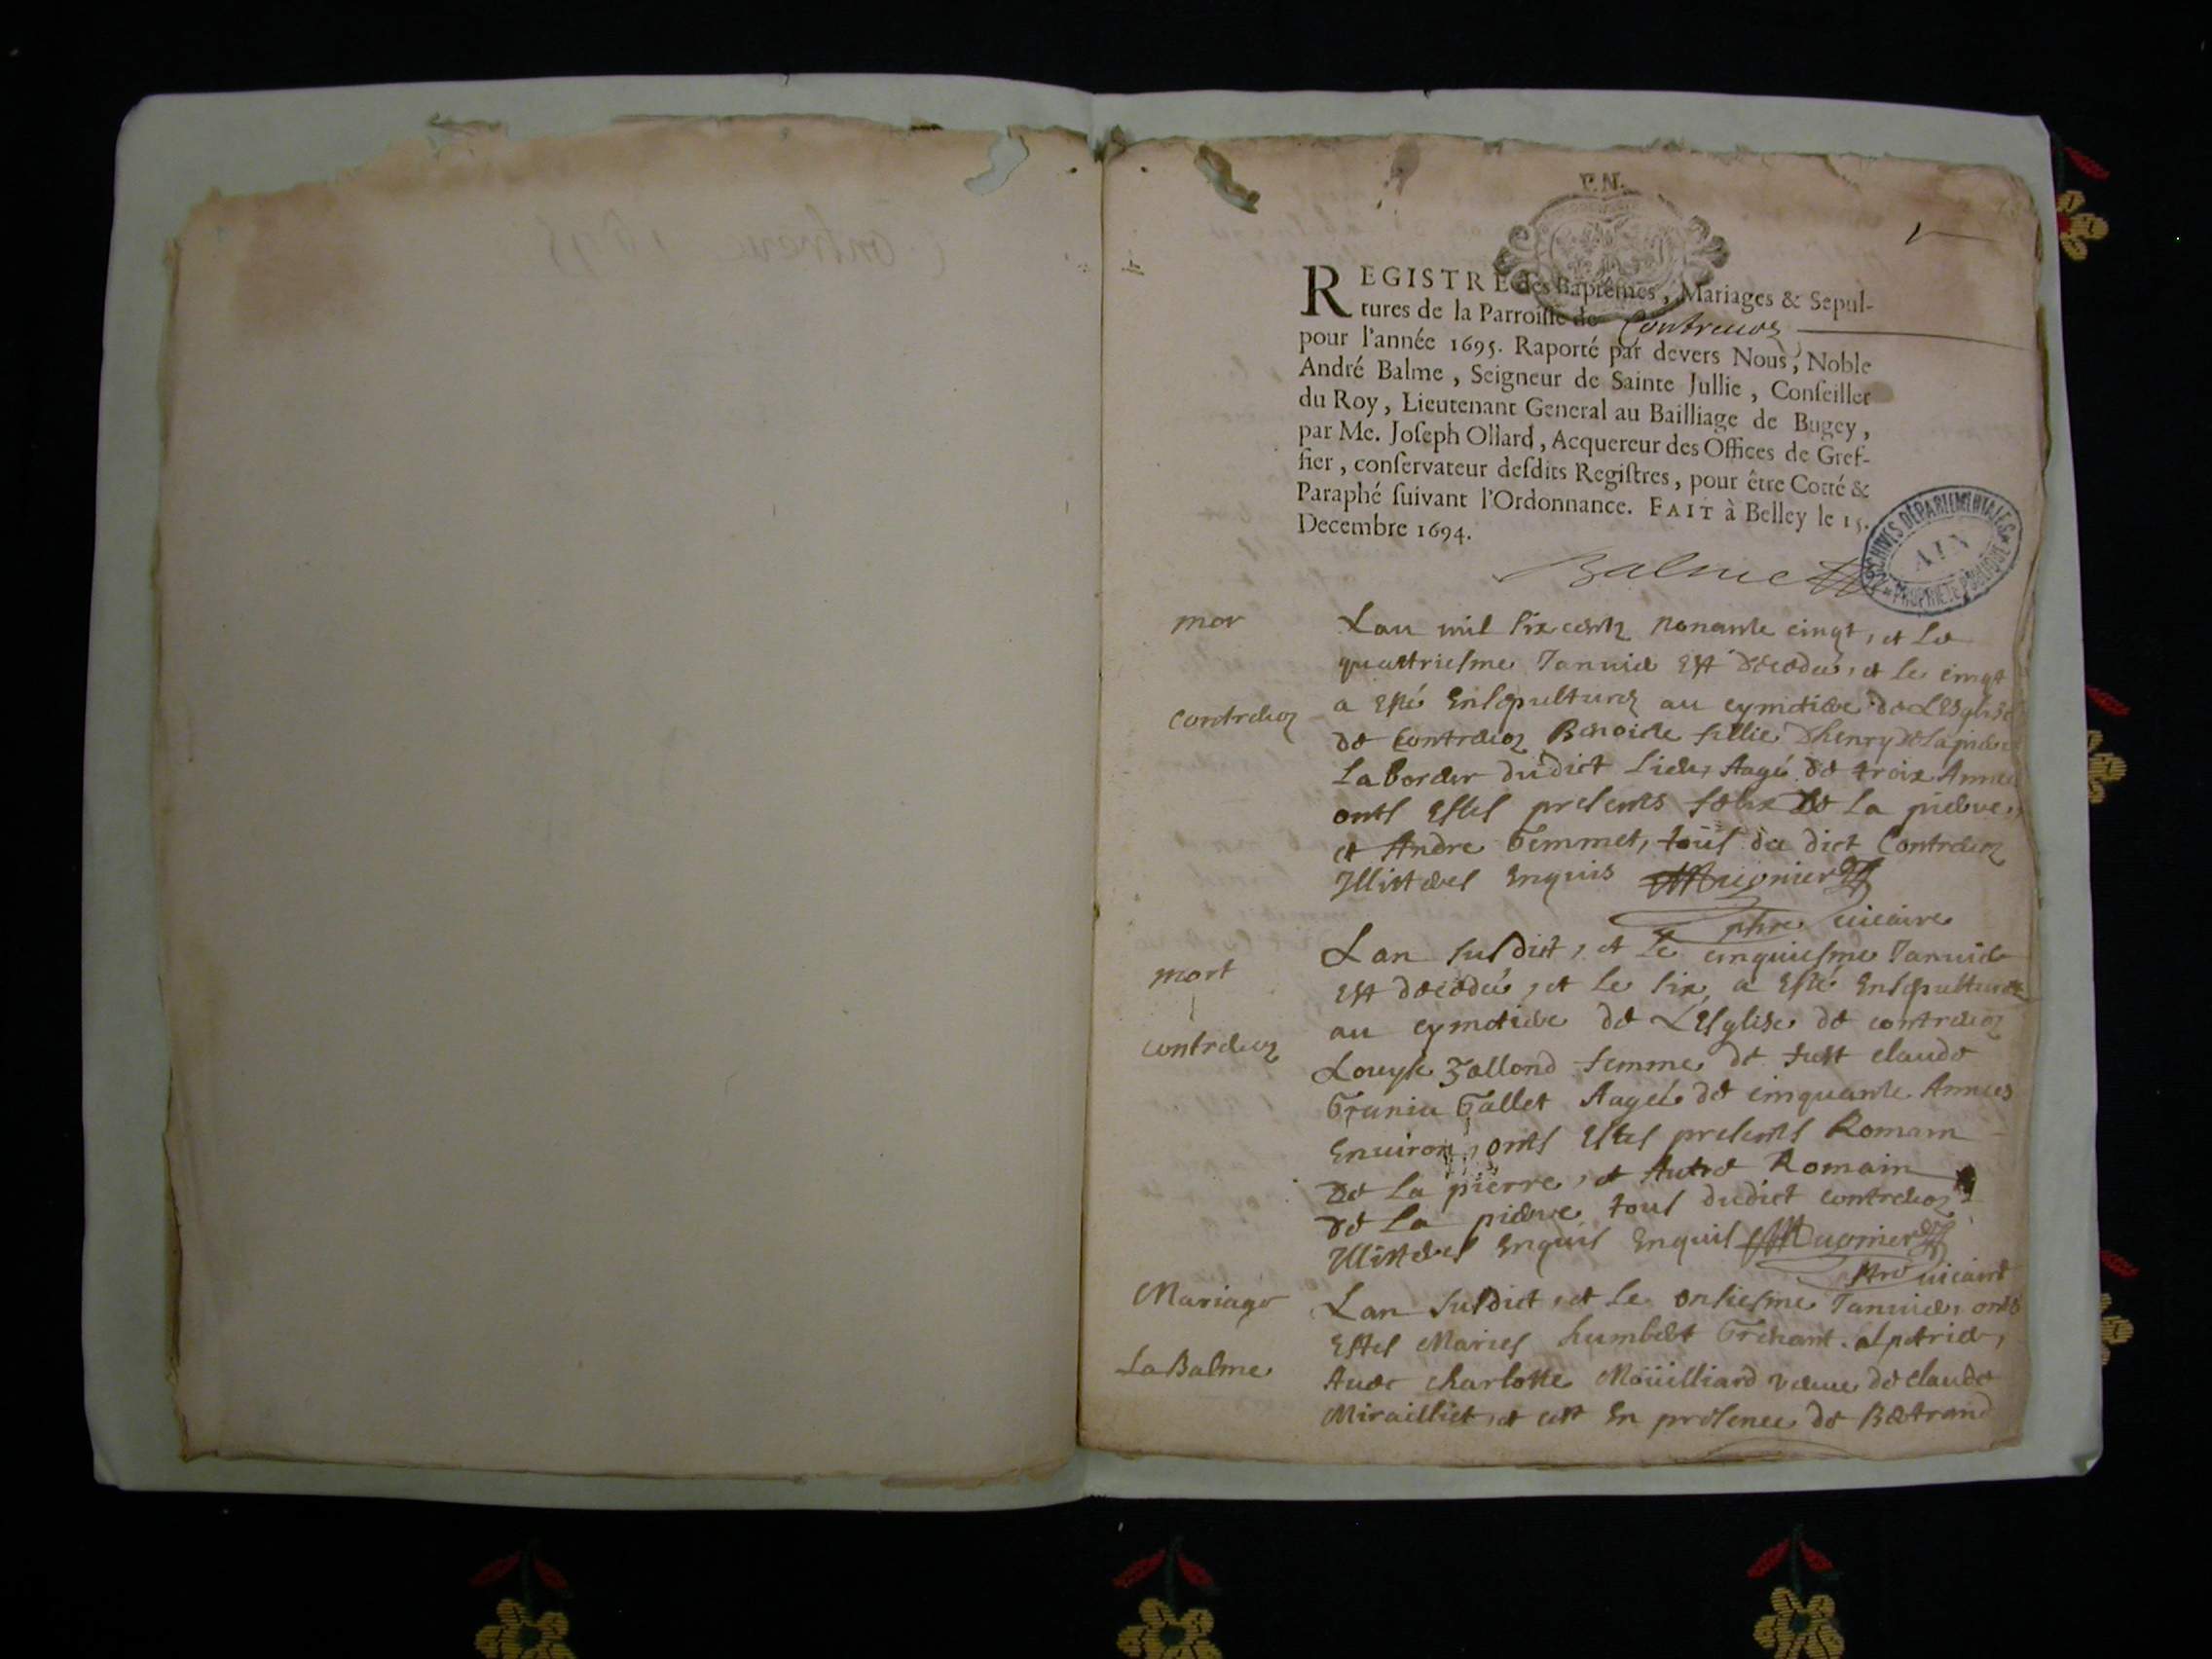 F.N.
REGISTRE des Baptêmes, Mariages & Sepul-
tures de la Parroisse de Contreuoz
pour l'année 1695. Raporté par devers Nous, Noble
André Balme, Seigneur de Sainte Jullie, Conseiller
du Roy, Lieutenant General au Bailliage de Bugey,
par Me. Joseph Ollard, Acquereur des Offices de Gref-
fier, conservateur desdits Registres, pour être Cotté &
Paraphé suivant l'Ordonnance. FAIT à Belley le 15.
Decembre 1694.
Balme
ARCHIVES DÉPARTEMENTALES
AIN
PROPRIÉTÉ PUBLIQUE
mor
Contreuoz
Lan mil six cents nonante cinqt, et le
quattriesme Januier est décédée, et le cinqt
a esté ensepulturez au cymetiere de L'Esglise
de Contreuoz Benoiste fillie Dhenry de la pierre
Laborder dudict Lieu, Aagé de troix Années
onts estes presents de la pierre,
et Andre Gemmet, tous du dict Contreuoz
Illitteres enquis Mugnier
ptre vicaire
mort
contreuoz
Lan susdict, et le cinquiesme Januier
est décédée, et le six, a esté ensepulturez
au cymetiere de L'Esglise de contreuoz
Louyse femme de fust claude
Gallet Aagée de cinquante Années
enuiron, onts estes presents Romain
de la pierre, et Autre Romain
de la pierre tous dudict contreuoz
Illitteres enquis enquis Mugnier
ptre vicaire
Mariage
La Balme
Lan susdict, et le onsiesme Januier, onts
estes Maries humbert
Auec charlotte Moüilliard veuue de claude
Mirailliet, et cest en presence de Bertrand